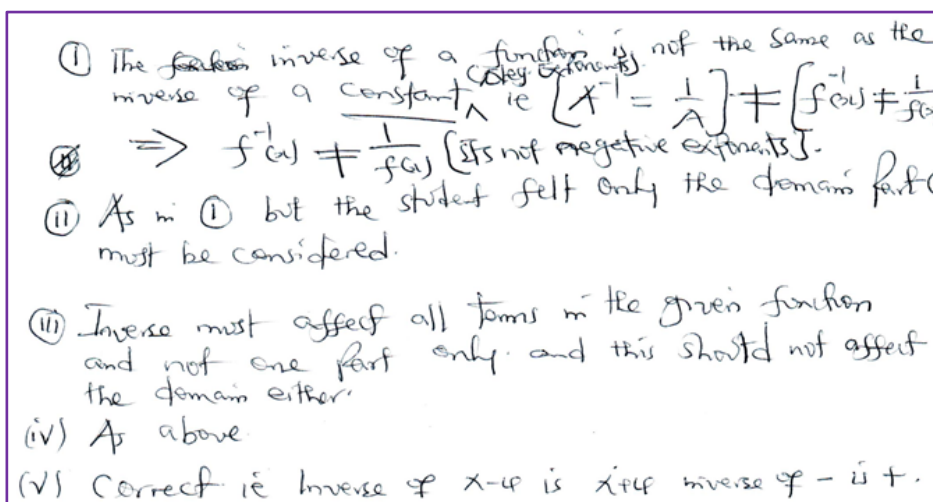 (i) The inverse of a function is not the same as the
inverse of a constant ie [A⁻¹ = 1/A] ≠ [f⁻¹(x) ≠ 1/f(x)
⇒ f⁻¹(x) ≠ 1/f(x) [its not negative exponents].
(ii) As in (i) but the student felt only the domain part
must be considered.
(iii) Inverse must affect all terms in the given function
and not one part only. and this should not affect
the domain either.
(iv) As above
(v) Correct ie Inverse of x-4 is x+4 inverse of - is +.